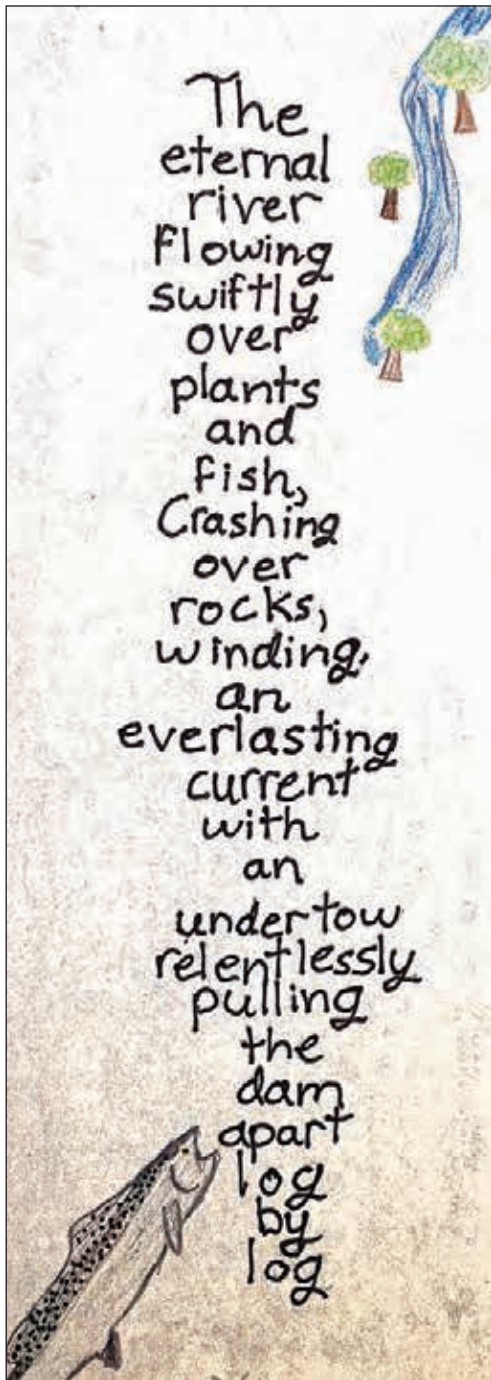 The
eternal
river
flowing
swiftly
over
plants
and
fish,
Crashing
over
rocks,
winding,
an
everlasting
current
with
an
undertow
relentlessly
pulling
the
dam
apart
log
by
log